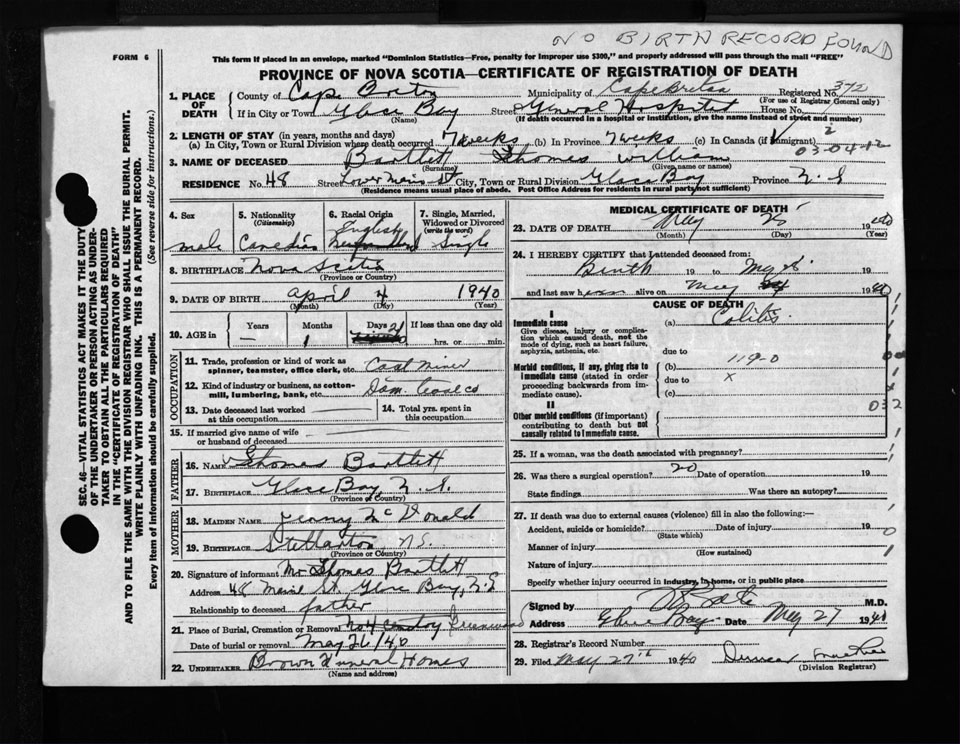 NO BIRTH RECORD FOUND
FORM 6
This form if placed in an envelope, marked "Dominion Statistics—Free, penalty for improper use $300," and properly addressed will pass through the mail "FREE"
PROVINCE OF NOVA SCOTIA—CERTIFICATE OF REGISTRATION OF DEATH
SEC. 46—VITAL STATISTICS ACT MAKES IT THE DUTY
OF THE UNDERTAKER OR PERSON ACTING AS UNDER-
TAKER TO OBTAIN ALL THE PARTICULARS REQUIRED
IN THE "CERTIFICATE OF REGISTRATION OF DEATH"
AND TO FILE THE SAME WITH THE DIVISION REGISTRAR WHO SHALL ISSUE THE BURIAL PERMIT.
WRITE PLAINLY WITH UNFADING INK. THIS IS A PERMANENT RECORD.
Every item of information should be carefully supplied. (See reverse side for instructions.)
1. PLACE OF DEATH
County of Cape Breton Municipality of Cape Breton Registered No. 372
(For use of Registrar General only)
If in City or Town Glace Bay Street General Hospital House No.
(Name) (If death occurred in a hospital or institution, give the name instead of street and number)
2. LENGTH OF STAY (in years, months and days)
(a) In City, Town or Rural Division where death occurred 7 weeks (b) In Province 7 weeks (c) In Canada (if immigrant)
2
03-04-12
3. NAME OF DECEASED Bartlett Thomas William
(Surname) (Given name or names)
RESIDENCE No. 48 Street Lower Main St City, Town or Rural Division Glace Bay Province N.S
(Residence means usual place of abode. Post Office Address for residents in rural parts not sufficient)
4. Sex
male
5. Nationality (Citizenship)
Canadian
6. Racial Origin
English
Newfoundland
7. Single, Married, Widowed or Divorced (write the word)
Single
8. BIRTHPLACE Nova Scotia
(Province or Country)
9. DATE OF BIRTH April 4 1940
(Month) (Day) (Year)
10. AGE in
Years —
Months 1
Days 21
If less than one day old
hrs. or min.
OCCUPATION
11. Trade, profession or kind of work as spinner, teamster, office clerk, etc. Coal Miner
12. Kind of industry or business, as cotton-mill, lumbering, bank, etc. Dom. Coal Co
13. Date deceased last worked at this occupation
14. Total yrs. spent in this occupation
15. If married give name of wife or husband of deceased
FATHER
16. NAME Thomas Bartlett
17. BIRTHPLACE Glace Bay, N.S.
(Province or Country)
MOTHER
18. MAIDEN NAME Jenny McDonald
19. BIRTHPLACE Stellarton, N.S.
(Province or Country)
20. Signature of informant Mr Thomas Bartlett
Address 48 Main St. Glace Bay, N.S
Relationship to deceased father
21. Place of Burial, Cremation or Removal Greenwood
Date of burial or removal May 26/40
22. UNDERTAKER Brown Funeral Homes
(Name and address)
MEDICAL CERTIFICATE OF DEATH
23. DATE OF DEATH May 25 1940
(Month) (Day) (Year)
24. I HEREBY CERTIFY that I attended deceased from:
Birth 19 to 19
and last saw h alive on May 1940
CAUSE OF DEATH
I
Immediate cause
Give disease, injury or complication which caused death, not the mode of dying, such as heart failure, asphyxia, asthenia, etc.
(a) Colitis.
due to
Morbid conditions, if any, giving rise to immediate cause (stated in order proceeding backwards from immediate cause).
(b) 119-0
due to x
(c)
II
Other morbid conditions (if important) contributing to death but not causally related to immediate cause.
032
25. If a woman, was the death associated with pregnancy?
26. Was there a surgical operation? no Date of operation 19
State findings Was there an autopsy?
27. If death was due to external causes (violence) fill in also the following:—
Accident, suicide or homicide? Date of injury 19
(State which)
Manner of injury
(How sustained)
Nature of injury
Specify whether injury occurred in industry, in home, or in public place
Signed by M.D.
Address Glace Bay Date May 27 1940
28. Registrar's Record Number
29. Filed May 27th 1940
(Division Registrar)